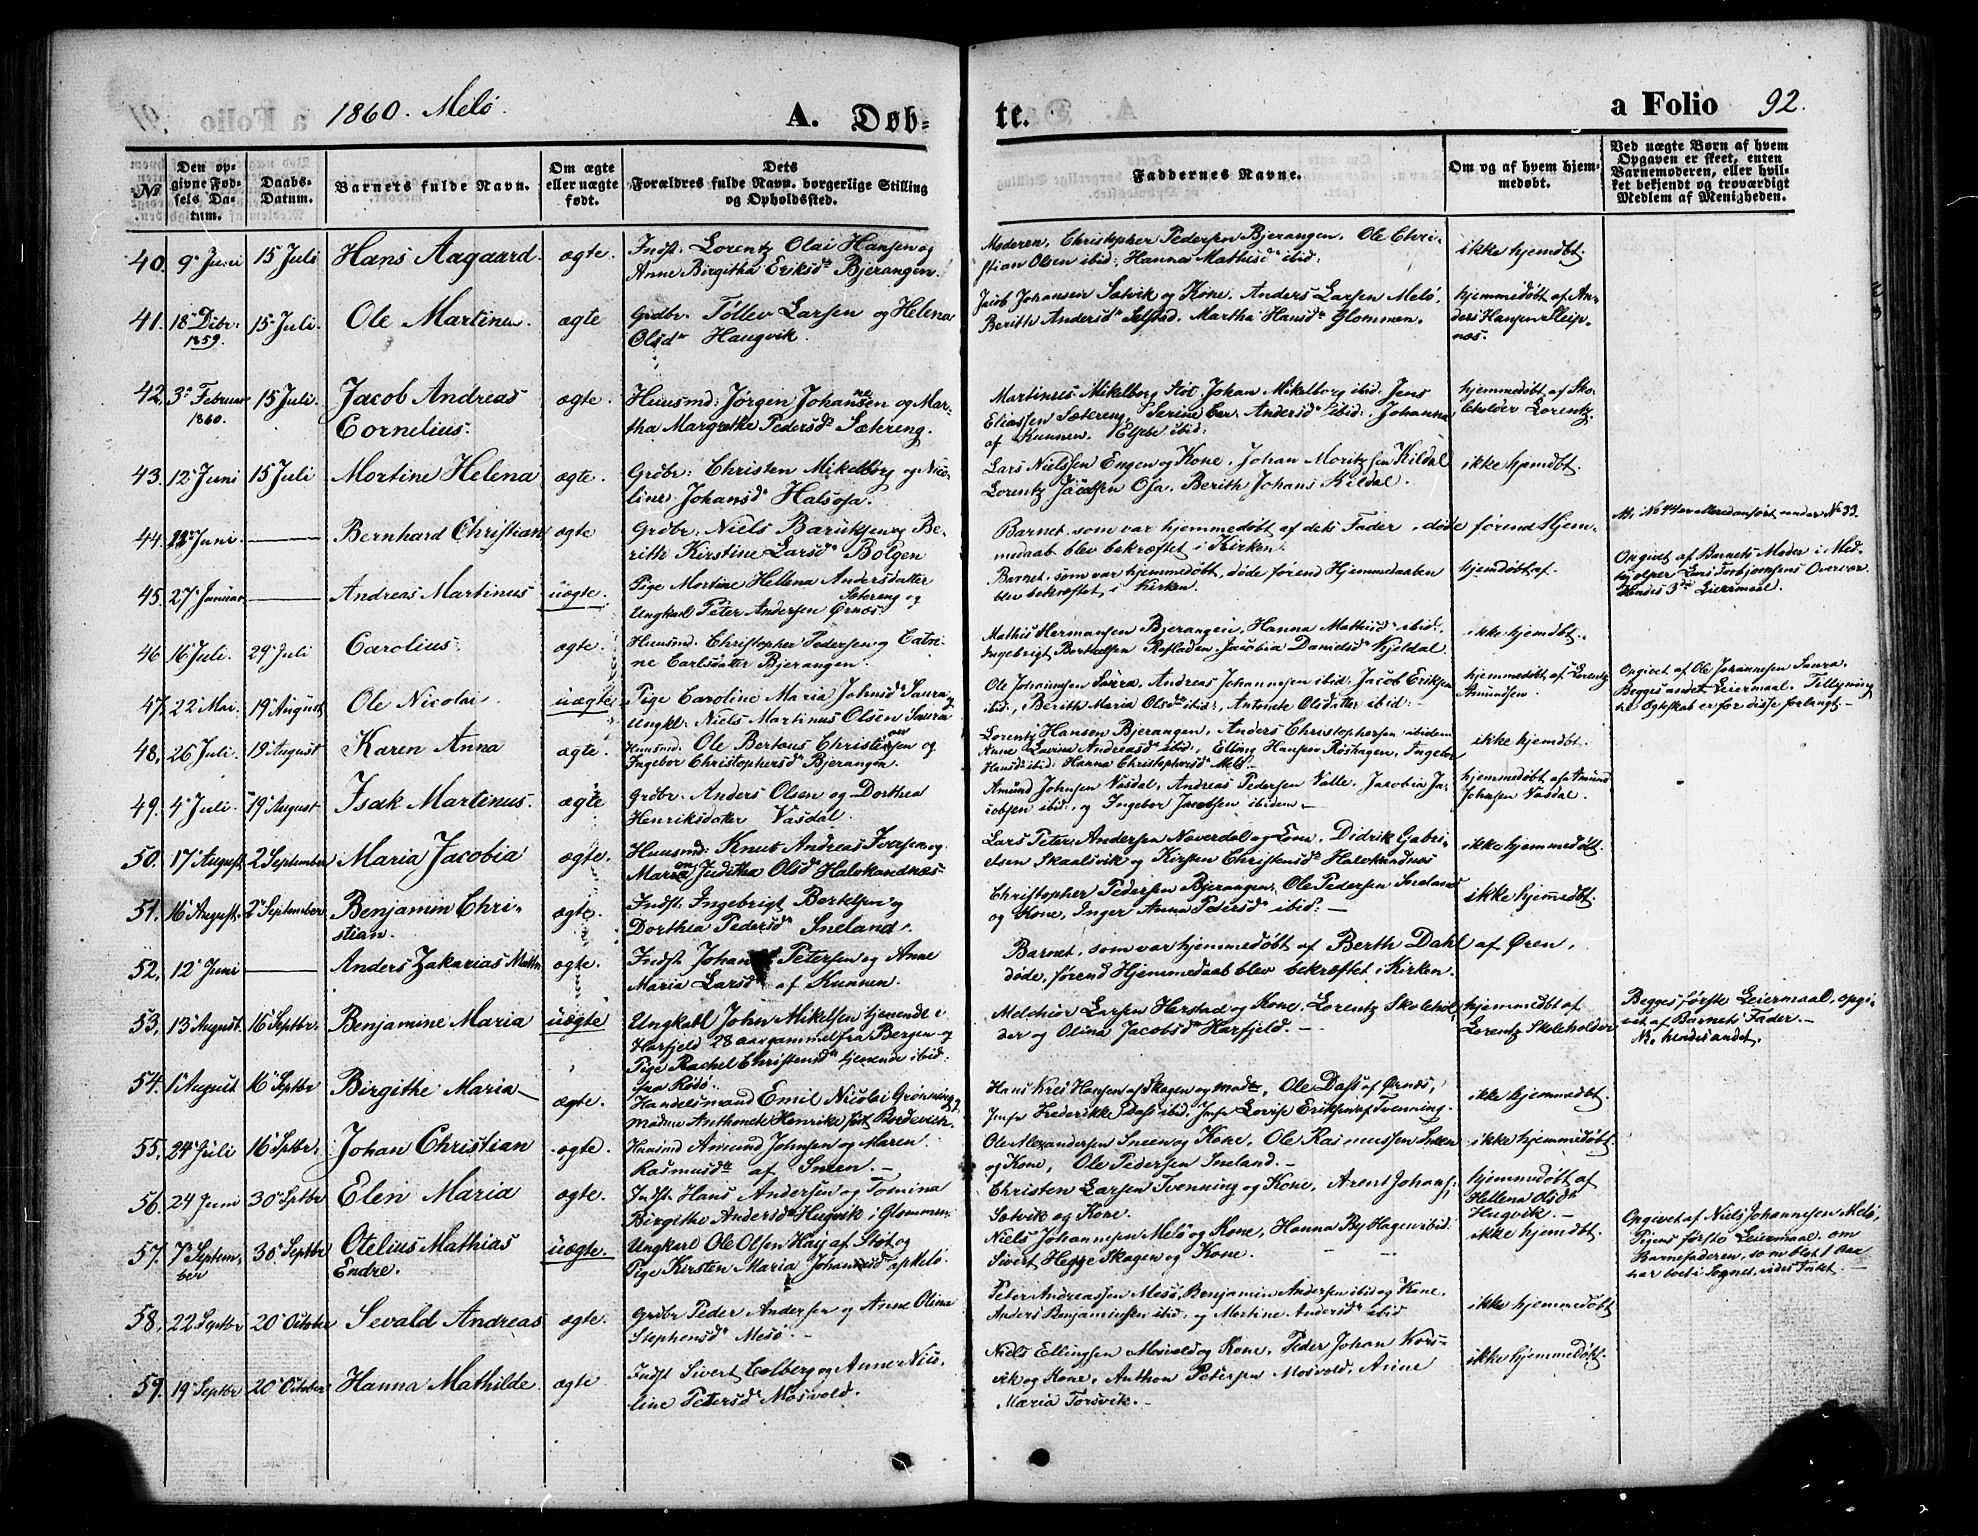 1860. Melö.
A. Døb-
te.
a Folio 92.
№
Den op-
givne Fød-
sels Da-
tum.
Daabs-
Datum.
Barnets fulde Navn.
Om ægte
eller uægte
født.
Dets
Forældres fulde Navn, borgerlige Stilling
og Opholdssted.
Faddernes Navne.
Om og af hvem hjem-
medøbt.
Ved uægte Børn af hvem
Opgaven er skeet, enten
Barnemoderen, eller hvil-
ket bekjendt og troværdigt
Medlem af Menigheden.
40. 9 Juni 15 Juli Hans Aagaard. ægte. Indst. Lorentz Olai Hansen og
Anne Birgitha Eriksdr Bjerangen.
Moderen, Christopher Pedersen Bjerangen, Ole Chri-
stian Olsen ibid: Hanna Mathisdr ibid:
ikke hjemdøbt.
41. 18 Dcbr. 1859. 15 Juli. Ole Martinus. ægte Grdbr. Tollev Larsen og Helena
Olsdr Haugvik.
Jacob Johansen Sætvik og Kone, Anders Larsen Melö,
Berith Andersdr Selstad. Martha Hansdr Glommen.
hjemmedøbt af An-
ders Hansen Sleip-
næs.
42. 3 Februar 1860. 15 Juli. Jacob Andreas
Cornelius.
ægte Huusmd: Jørgen Johansen og Mar-
tha Margrethe Pedersdr Sætreng.
Martines Mikelborg Stot. Johan Mikelborg ibid. Jens
Eliassen Sætereng, Serine Ca: Andersdr ibid: Johanna
af Kunnen. Elsebe ibid:
hjemmedøbt af Sko-
leholder Lorentz.
43. 12 Juni 15 Juli Mortine Helena ægte. Grdbr: Christen Mikelborg og Nico-
line Johansdr Halsosa.
Lars Nielsen Engen og Kone, Johan Moritzsen Kildal
Lorentz Jacobsen Osa. Berith Johans Kildal.
ikke hjemdøbt.
44. 22 Juni. Bernhard Christian ægte Grdbr. Niels Baruksen og Be-
rith Kirstine Larsdr Bolgen
Barnet, som var hjemmedøbt af dets Fader, døde førend Hjem-
medaab blev bekræftet i Kirken.
45. 27 Januar Andreas Martinus uægte. Pige Mortine Hellena Andersdatter
Sætereng og
Ungkarl Peter Andersen Ørnæs.
Barnet, som var hjemmedøbt, døde førend Hjemmedaaben
blev bekræftet, i Kirken.
hjemdøbt af
Opgivet af Barnets Moder i Med-
hjelper Lars Torbjørnsens Overvær
Hendes 3die Leiermaal.
46 16 Juli. 29 Juli Carolius. ægte. Huusmd. Christopher Pedersen og Catri-
ne Carlsdatter Bjerangen.
Mathis Hermansen Bjerangen, Hanna Mathisdr ibid:,
Ingebrigt Berthelsen Kofladen. Jacobia Danielsdr Kjeldal.
ikke hjemdøbt.
47. 22 Mai. 19 August Ole Nicolai uægte Pige Caroline Maria Johnsdr Saura og
Ungkl: Niels Martinus Olsen Saura
Ole Johannsen Saura, Andreas Johannsen ibid: Jacob Eriksen
ibid., Berith Maria Olsdr ibid: Antonete Olsdatter ibid:
hjemmedøbt af Lorentz
Amundsen.
Opgivet af Ole Johannesen Saura.
Begges andet Leiermaal. Tillysning
til Ægteskab er for disse forlangt.
48, 26 Juli 19 August Karen Anna ægte. Huusmd. Ole Bertous Christensen og
Ingebor Christophersdr Bjerangen.
Lorentz Hansen Bjerangen, Anders Christophersen ibidem
Anne Lavina Andreasdr ibid:, Elling Hansen Röshagen, Ingebor
Hansdr ibid: Hanna Christophersdr Melö.
ikke hjemdøbt.
49. 4 Juli. 19 August Isak Martinus. ægte Grdbr. Anders Olsen og Dorthea
Henriksdatter Vasdal.
Amund Johnsen Vasdal, Andreas Pedersen Valle, Jacobia Ja-
cobsen ibid:, og Ingebor Jacobsen ibidem.
hjemmedøbt af Amund
Johnsen Vasdal.
50. 17 August 2 September Maria Jacobia ægte. Huusmd: Knut Andreas Iversen og
Maria Juditha Olsdr Halvkandnæs
Lars Peter Andersen Naverdal og Kone. Didrik Gabri-
elsen Skaalsvik og Kirsten Christensdr Halvkandnæs
ikke hjemmedøbt.
51. 16 August. 2 September Benjamin Chri-
stian.
ægte. Indst. Ingebrigt Berthsen og
Dorthea Pedersdr Sneland.
Christopher Pedersen Bjerangen, Ole Pedersen Sneland
og Kone, Inger Anna Petersdr ibid:
ikke hjemmedøbt.
52, 12 Juni Anders Zakarias Mattn ægte. Indst. Johan Petersen og Anne
Maria Larsdr af Kunnen.
Barnet, som var hjemmedøbt af Berth Dahl af Øren,
døde, førend Hjemmedaab blev bekræftet i Kirken.
53, 13 August. 16 Septbr. Benjamine Maria uægte Ungkarl John Mikelsen tjenende i
Harfjeld 28 aar gammel fra Bergen og
Pige Rachel Christensdr tjenende ibid:
fra Rödö.
Melchior Larsen Herstad og Kone, Lorentz Skolehol-
der og Olina Jacobsdr Harfjeld.
hjemmedøbt af
Lorentz Skoleholder
Begges første Leiermaal, opgi-
vet af Barnets Fader.
NB. hendes andet.
54. 1 August 16 Septbr Birgithe Maria ægte. Handelsmand Emil Nicolai Grönning og
Madme Anthonete Henrike født Bordevich.
Hans Kreu Hansen af Skagen og Madme, Ole Dass af Ørnæs,
Jmfr Frederikke Dass ibid. Jmfr Lovise Eriksen af Tvenning.
ikke hjemmedøbt.
55. 24 Juli 16 Septbr. Johan Christian ægte. Huusmd Amund Johnsen og Maren
Rasmusdtr af Sneen.
Ole Alexandersen Sneen og Kone, Ole Rasmussen Sneen
og Kone, Ole Pedersen Sneland.
ikke hjemmedøbt.
56. 24 Juni 30 Septbr Elen Maria ægte. Indst. Hans Andersen og Tomina
Birgithe Andersdr Hugvik i Glommen.
Christen Larsen Tvenning og Kone, Arent Johans,
Sætvik og Kone.
hjemmedøbt af
Hellena Olsdr
Hugvik.
57. 7 Septem-
ber 30 Septbr Otelius Mathias
Endre.
uægte. Ungkarl Ole Olsen Haij af Stot og
Pige Kirsten Maria Johansd af Melö.
Niels Johannesen Melö og Kone, Hanna By Hagen ibid.
Sivert Hegge Skagen og Kone.
ikke hjemdøbt.
Opgivet af Niels Johannesen Melö,
Pigens første Leiermaal, om
Barnefaderen, som blot 1 Aar
har boet i Sognet, vides Intet.
58, 22 Septbr 20 October Sevald Andreas ægte. Grdbr Peder Andersen og Anne Olina
Stephensdr Mesö.
Peter Andreassen Mesö, Benjamin Andersen ibid og Kone,
Anders Benjaminsen ibid: og Martine Andersdr ibid
ikke hjemmedøbt
59. 19 Septbr 20 October Hanna Mathilde. ægte Indst Sivert Colberg og Anne Nico-
line Petersd Mosvold.
Niels Ellingsen Mosvold og Kone, Peder Johan Kors-
vik og Kone, Anthon Petersen Mosvold, Anne
Maria Torsvik.
ikke hjemmedøbt.